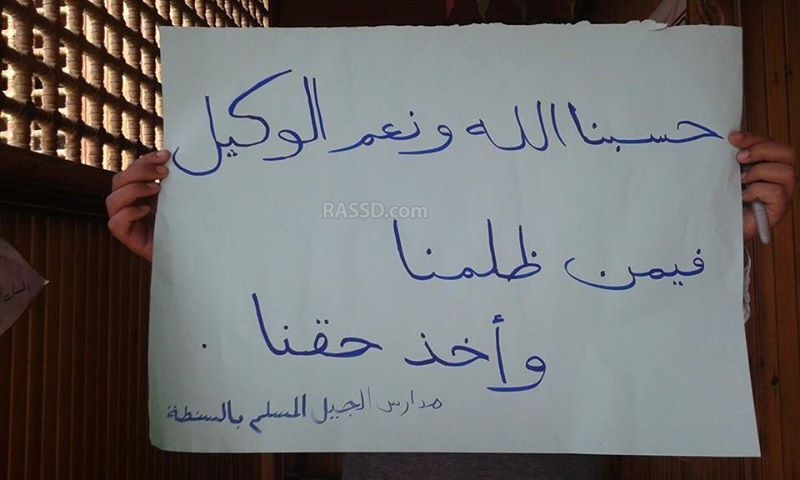 حسبنا الله ونعم الوكيل
RASSD.com
فيمن ظلمنا
وأخذ حقنا .
مدارس الجيل المسلم بالسنطة